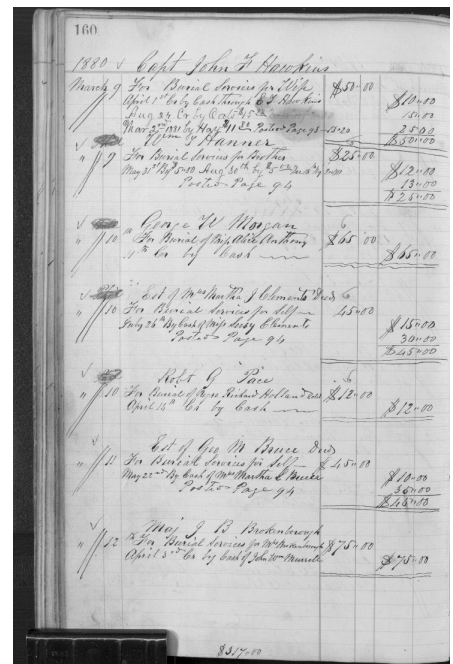 160
1880 Capt John F Hawkins
March 9 For Burial Services for Wife $50.00
April 1st Cr by Cash through E F Hawkins $10.00
Aug 24 Cr by Cash $15.00 15.00
Posted Page 93 25.00
$50.00
S Hanner
" 9 For Burial Services for Brother $25.00
May 31st By $5.00 Aug 30th by $12.00
Posted Page 94 13.00
$25.00
George W Morgan
" 10 For Burial of Alice Anthony $65.00
" Cr by Cash $65.00
Est of Mrs Martha J Clements Decd
" 10 For Burial Services for Self 45.00
July 26th By Cash of Miss Clements $15.00
Posted Page 94 30.00
$45.00
Robt G Pace
" 10 For Burial of Richard Holland $12.00
April 14th Cr by Cash $12.00
Est of Geo M Bruce Decd
" 11 For Burial Services for Self $45.00
May 22nd By Cash of Mrs Martha E Bruce $10.00
Posted Page 94 35.00
$45.00
Maj J B Brokenborough
" 12 For Burial Services for Mrs Brokenborough $75.00
April 3rd Cr by Cash of John Wm Murrell $75.00
$317.00